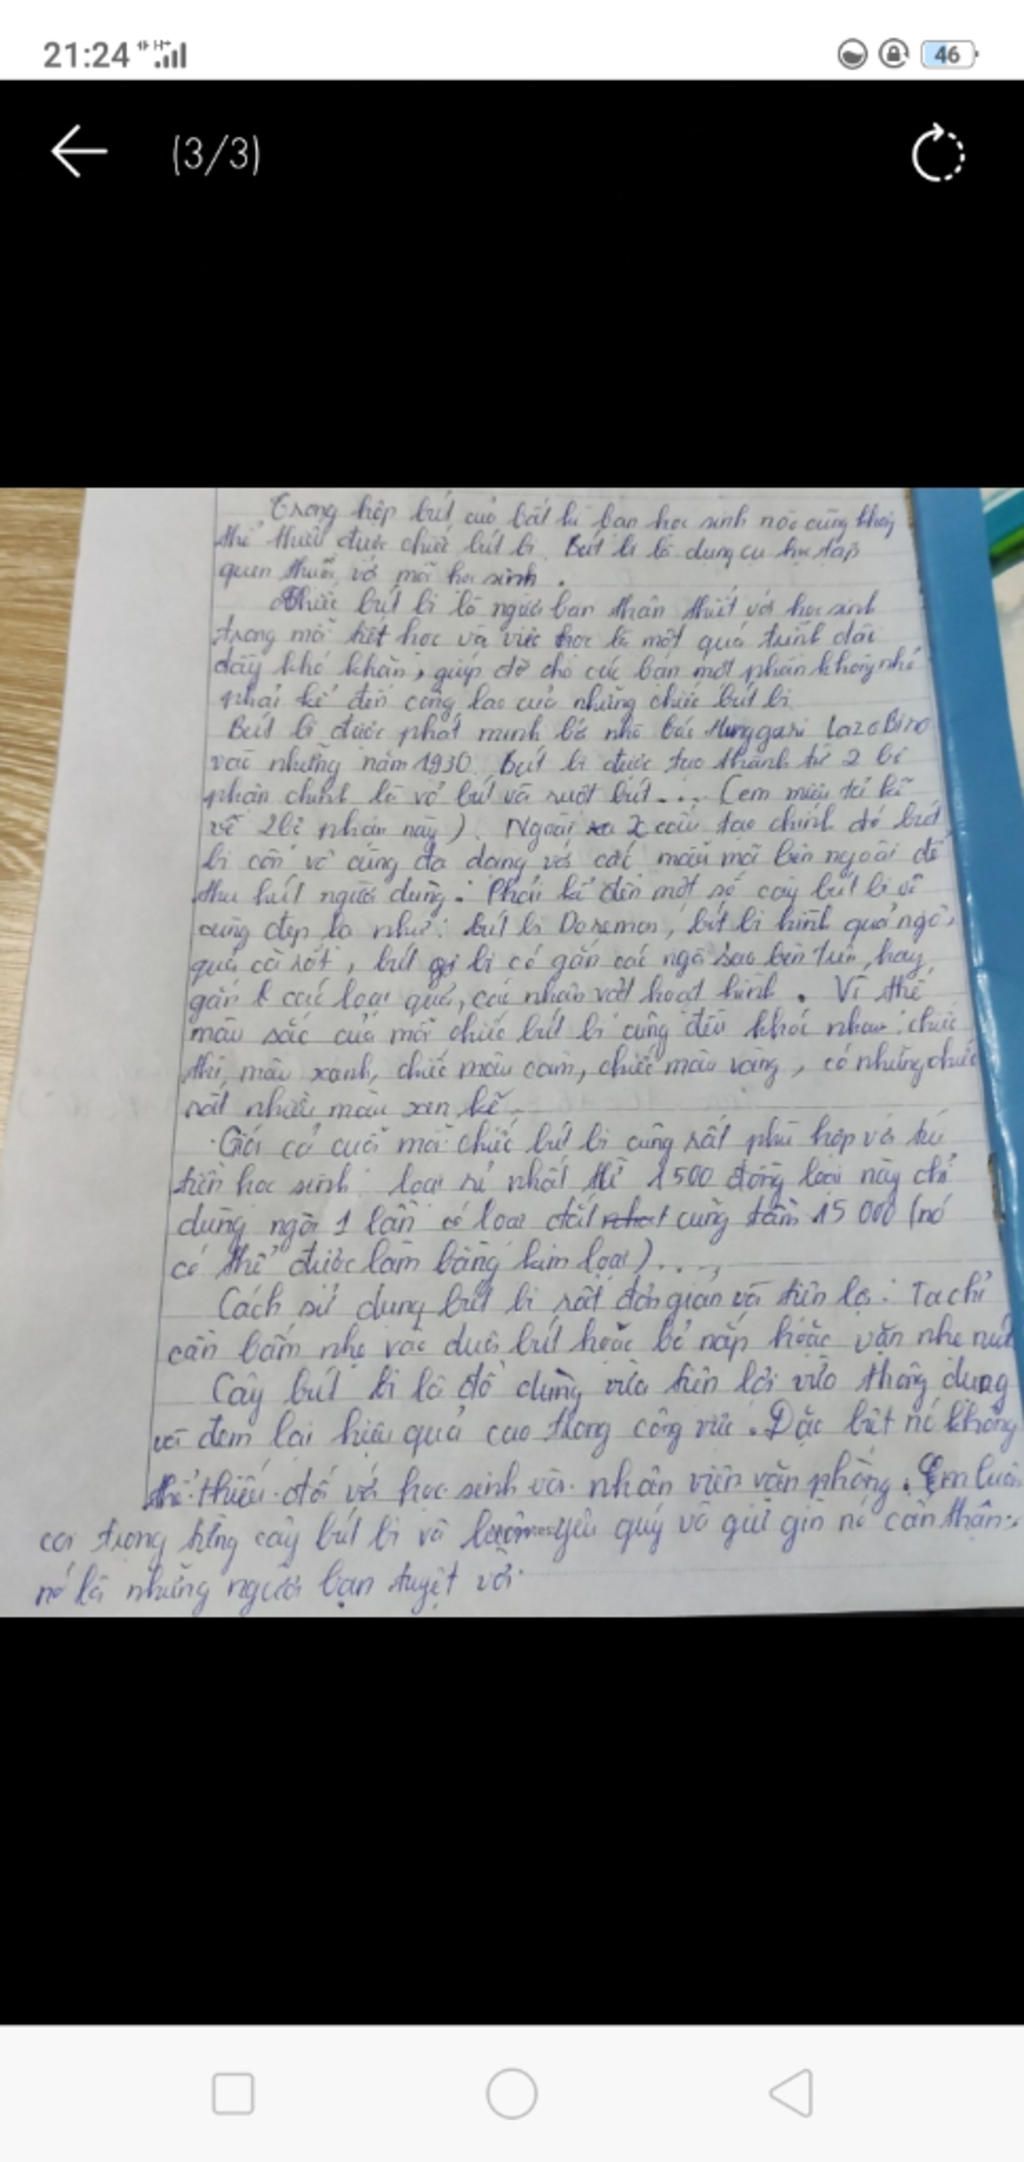 21:24
46
(3/3)
Trong hộp bút của bất kì bạn học sinh nào cũng không
thể thiếu được chiếc bút bi. Bút bi là dụng cụ học tập
quen thuộc với mỗi học sinh.
Chiếc bút bi là người bạn thân thiết với học sinh
trong mỗi tiết học và việc học là một quá trình dài
đầy khó khăn, giúp đỡ cho các bạn một phần không nhỏ
phải kể đến công lao của những chiếc bút bi
Bút bi được phát minh bởi nhà báo Hunggari Lazo Biro
vào những năm 1930. Bút bi được tạo thành từ 2 bộ
phận chính là vỏ bút và ruột bút.... (em miêu tả kĩ
về 2 bộ phận này). Ngoài 2 cấu tạo chính đó bút
bi còn vô cùng đa dạng với các mẫu mã bên ngoài để
thu hút người dùng. Phải kể đến một số cây bút bi vô
cùng đẹp lạ như: bút bi Doremon, bút bi hình quả ngô,
quả cà rốt, bút bi có gắn các ngôi sao bên trên, hay
gắn các loại quả, các nhân vật hoạt hình. Vì thế
màu sắc của mỗi chiếc bút bi cũng đều khác nhau: chiếc
thì màu xanh, chiếc màu cam, chiếc màu vàng, có những chiếc
rất nhiều màu xen kẽ.
Giá cả của mỗi chiếc bút bi cũng rất phù hợp với túi
tiền học sinh loại rẻ nhất thì 1500 đồng loại này chỉ
dùng ngòi 1 lần có loại đắt cũng tầm 15 000 (nó
có thể được làm bằng kim loại)....,
Cách sử dụng bút bi rất đơn giản và tiện lợi: Ta chỉ
cần bấm nhẹ vào đuôi bút hoặc bỏ nắp hoặc vặn nhẹ nút
Cây bút bi là đồ dùng vừa tiện lợi vừa thông dụng
và đem lại hiệu quả cao trong công việc. Đặc biệt nó không
thể thiếu đối với học sinh và nhân viên văn phòng. Em luôn
coi trọng từng cây bút bi và yêu quý và giữ gìn nó cẩn thận
nó là những người bạn tuyệt vời.